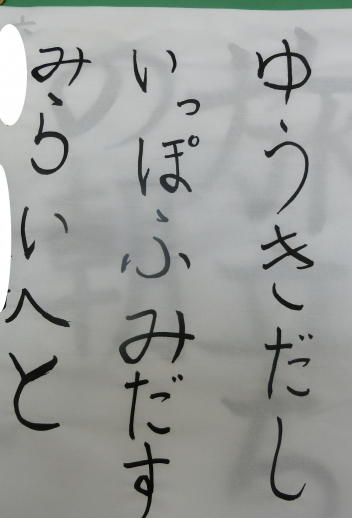 ゆうきだし
いっぽふみだす
みらいへと